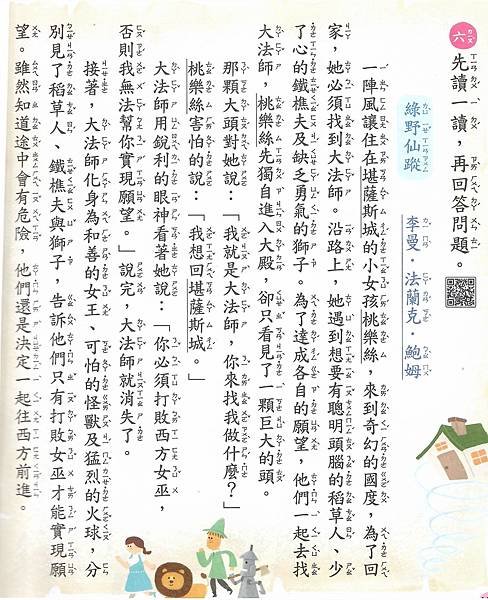 六 先讀一讀，再回答問題。
綠野仙蹤
李曼．法蘭克．鮑姆
一陣風讓住在堪薩斯城的小女孩桃樂絲，來到奇幻的國度，為了回
家，她必須找到大法師。沿路上，她遇到想要有聰明頭腦的稻草人、少
了心的鐵樵夫及缺乏勇氣的獅子。為了達成各自的願望，他們一起去找
大法師，桃樂絲先獨自進入大殿，卻只看見了一顆巨大的頭。
那顆大頭對她說：「我就是大法師，你來找我做什麼？」
桃樂絲害怕的說：「我想回堪薩斯城。」
大法師用銳利的眼神看著她說：「你必須打敗西方女巫，
否則我無法幫你實現願望。」說完，大法師就消失了。
接著，大法師化身為和善的女王、可怕的怪獸及猛烈的火球，分
別見了稻草人、鐵樵夫與獅子，告訴他們只有打敗女巫才能實現願
望。雖然知道途中會有危險，他們還是決定一起往西方前進。